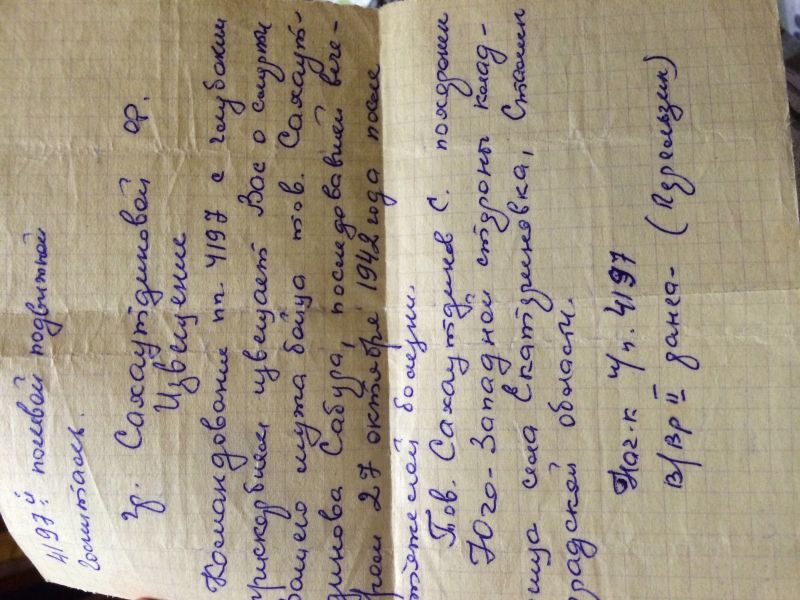 4197й полевой подвижной
госпиталь.
Гр. Сахаутдиновой Ф.
Извещение
Командование пп. 4197 с глубоким
прискорбием извещает Вас о смерти
Вашего мужа бойца тов. Сахаут-
динова Сабура, последовавшей вече-
ром 27 октября 1942 года после
тяжелой болезни.
Тов. Сахаутдинов С. похоронен
Юго-Западной стороны клад-
бища села Екатериновка, Сталин
градской области.
Нач-к ч/п. 4197
В/вр II ранга-